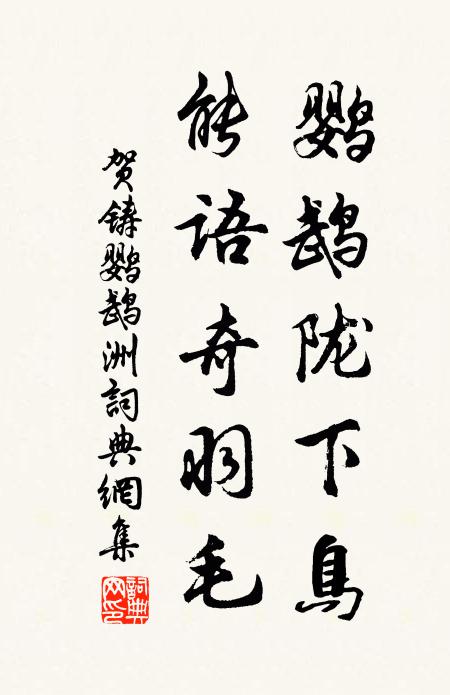 鹦鹉陇下鳥
能语奇羽毛
贺鑄鹦鹉洲詞典網集
詞典网印